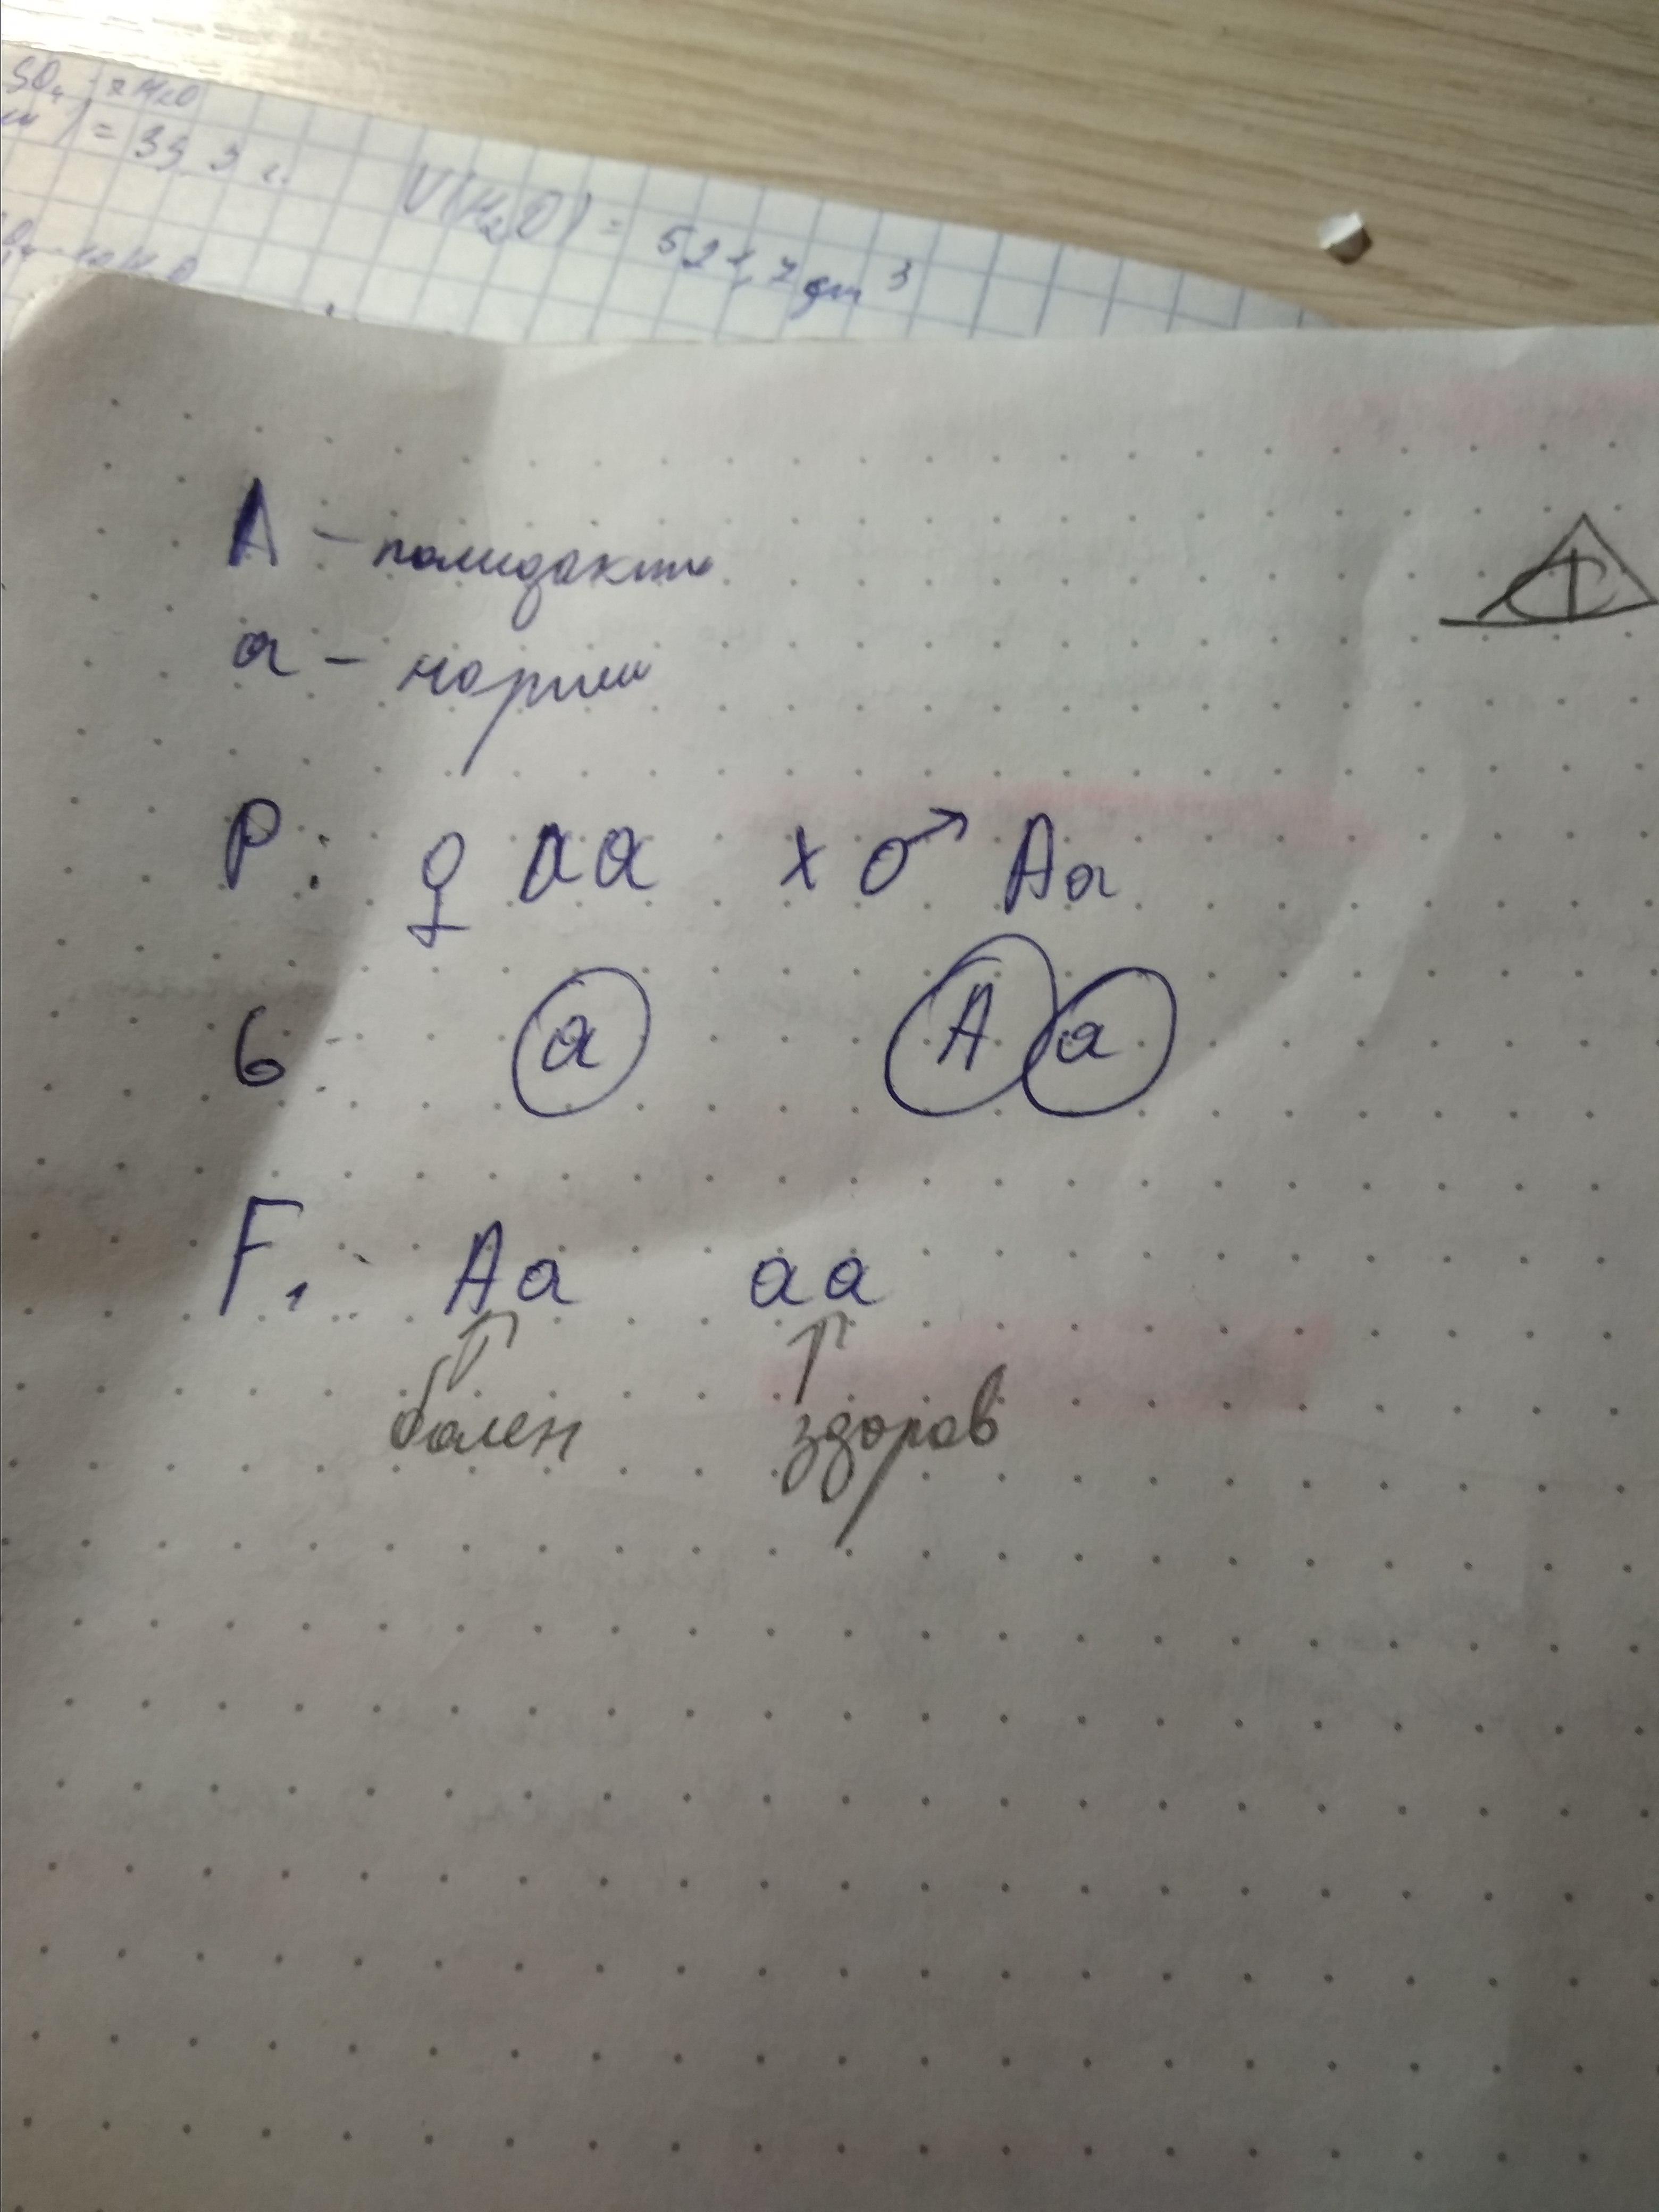 SO₄ · xH₂O
) = 33,3 г.
V(H₂O) = 521,7 дм³
A – полидакт
a – норма
P: ♀ aa x ♂ Aa
G: a A a
F₁: Aa aa
болен здоров